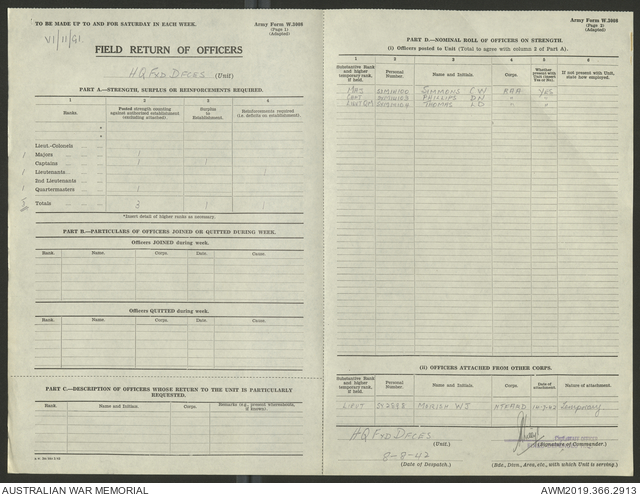 TO BE MADE UP TO AND FOR SATURDAY IN EACH WEEK.
Army Form W.3008
(Page 1)
(Adapted)
VI/11/G1
FIELD RETURN OF OFFICERS
HQ FXD DFCES (Unit)
PART A.—STRENGTH, SURPLUS OR REINFORCEMENTS REQUIRED.
1 2 3 4
Ranks. Posted strength counting against authorised establishment (excluding attached). Surplus to Establishment. Reinforcements required (i.e. deficits on establishment).
*
*
Lieut.-Colonels
1 Majors 1
1 Captains 1 1
1 Lieutenants 1
2nd Lieutenants
1 Quartermasters 1
Totals 3 1 1
*Insert detail of higher ranks as necessary.
PART B.—PARTICULARS OF OFFICERS JOINED OR QUITTED DURING WEEK.
Officers JOINED during week.
Rank. Name. Corps. Date. Cause.
Officers QUITTED during week.
Rank. Name. Corps. Date. Cause.
PART C.—DESCRIPTION OF OFFICERS WHOSE RETURN TO THE UNIT IS PARTICULARLY REQUESTED.
Rank. Name and Initials. Corps. Remarks (e.g., present whereabouts, if known).
Army Form W.3008
(Page 2)
(Adapted)
PART D.—NOMINAL ROLL OF OFFICERS ON STRENGTH.
(i) Officers posted to Unit (Total to agree with column 2 of Part A).
1 2 3 4 5 6
Substantive Rank and higher temporary rank, if held. Personal Number. Name and Initials. Corps. Whether present with Unit (insert Yes or No). If not present with Unit, state how employed.
MAJ SIMMONS C W RAA YES
CAPT PHILLIPS D N " "
LIEUT QM THOMAS I D " "
(ii) OFFICERS ATTACHED FROM OTHER CORPS.
Substantive Rank and higher temporary rank, if held. Personal Number. Name and Initials. Corps. Date of attachment. Nature of attachment.
LIEUT W J Temporary
HQ FXD DFCES (Unit.)
(Signature of Commander.)
8-8-42
(Date of Despatch.)
(Bde., Divn., Area, etc., with which Unit is serving.)
AUSTRALIAN WAR MEMORIAL
AWM2019.366.2913